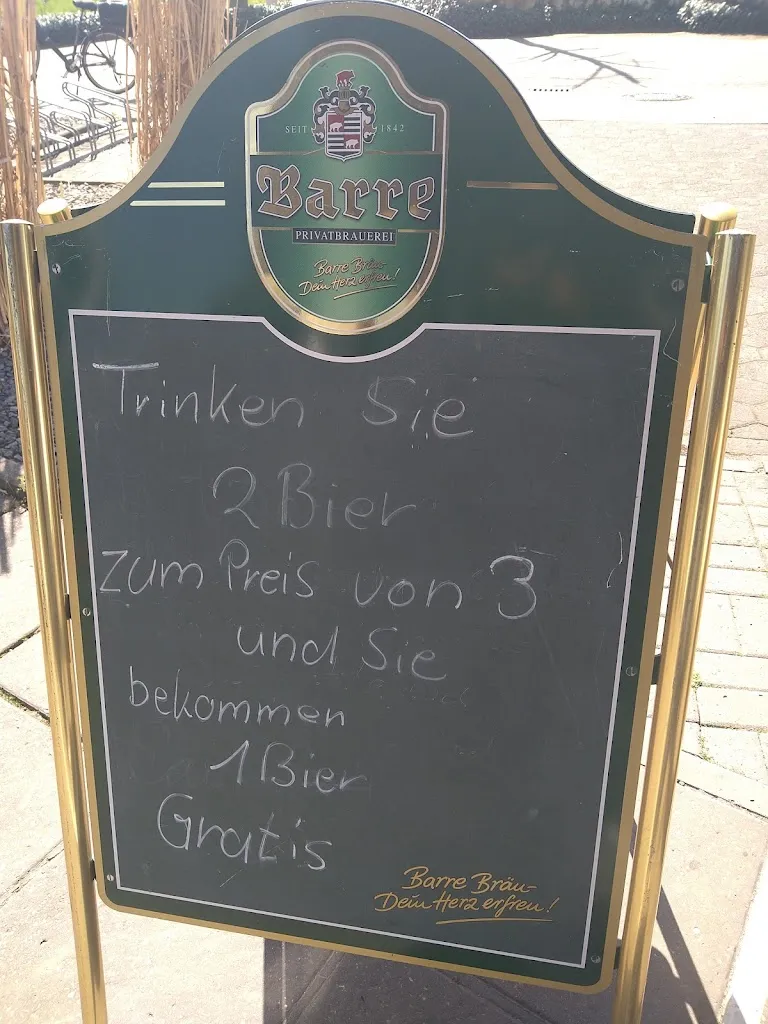 SEIT 1842
Barre
PRIVATBRAUEREI
Barre Bräu-
Dein Herz erfreu!
Trinken Sie
2 Bier
zum Preis von 3
und Sie
bekommen
1 Bier
Gratis
Barre Bräu-
Dein Herz erfreu!